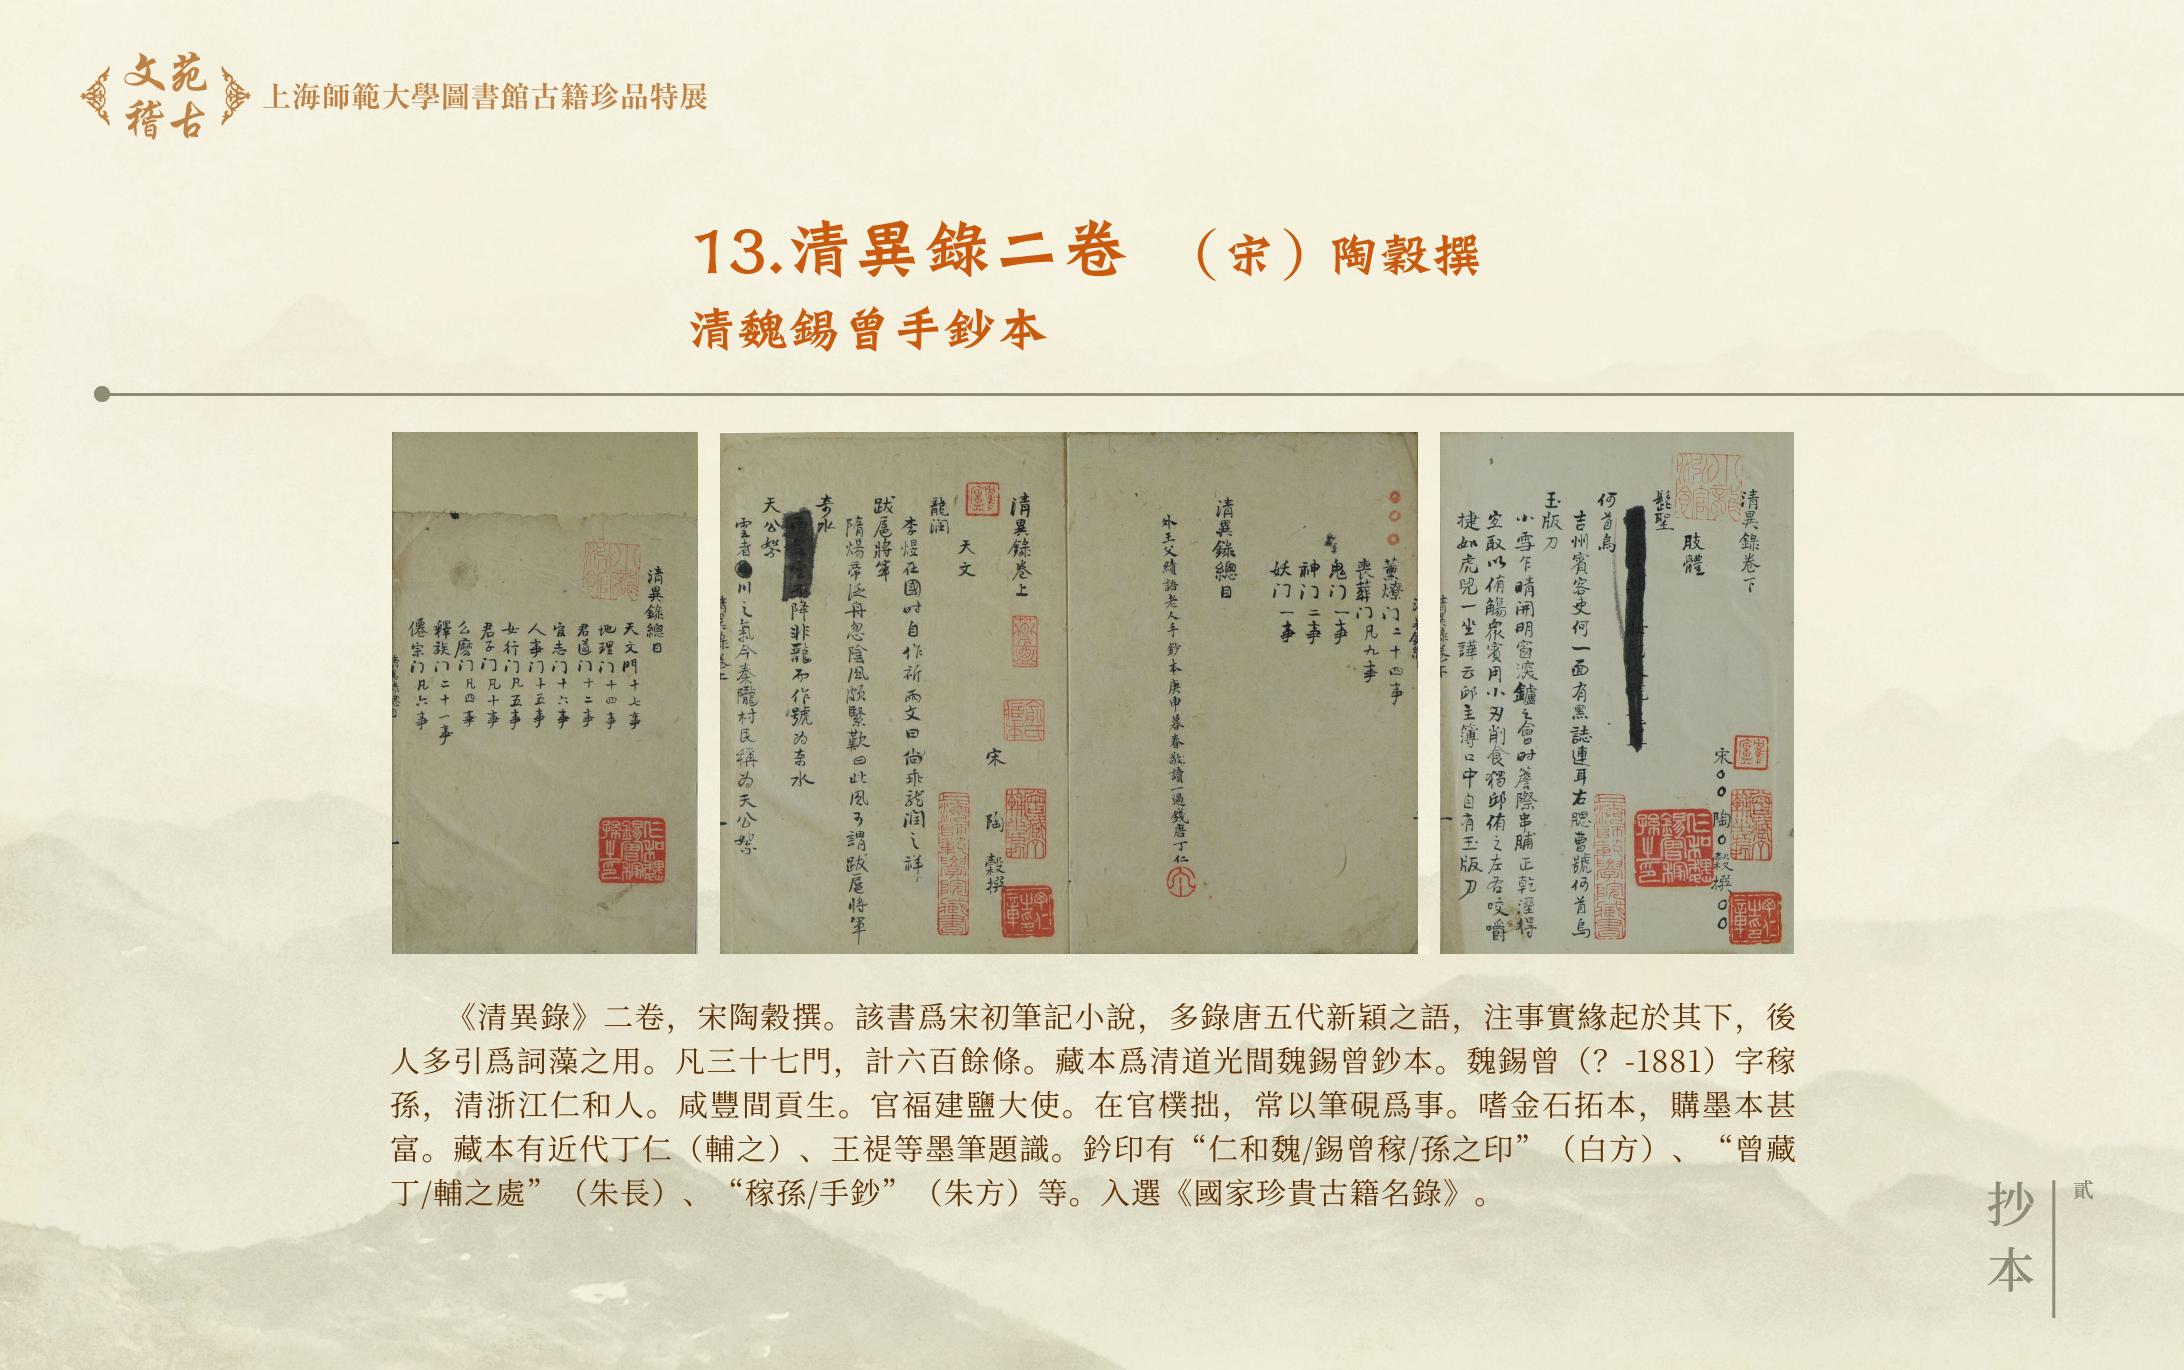 文苑
稽古
上海師範大學圖書館古籍珍品特展
13.清異錄二卷 （宋）陶穀撰
清魏錫曾手鈔本
清異錄總目
天文門十七事
地理门十四事
君道门十二事
官志门十六事
人事门十五事
女行门凡五事
君子门凡十事
么麽门凡四事
釋族门二十一事
僊宗门凡六事
薰燎门二十四事
喪葬门凡九事
鬼门一事
神门二事
妖门一事
清異錄總目
外王父績語老人手鈔本庚申暮春敬讀一過錢唐丁仁
清異錄卷上
宋 陶穀撰
天文
龍润
李煜在國时自作祈雨文曰尚乖龙润之祥
跋扈將軍
隋煬帝泛舟忽陰风颇緊歎曰此风可謂跋扈將軍
奇水
降非龍而作號为奈水
天公絮
雲者 川之氣今秦隴村民稱为天公絮
清異錄卷下
宋 陶穀撰
肢體
髭聖
何首烏
吉州賓客吏何一面有黑誌連耳右腮曹號何首烏
玉版刀
小雪乍晴開明窗滚鑪之會时簷際串脯正乾溼得
宜取以侑觴衆賓用小刃削食獨邱侑之左右咬嚼
捷如虎兕一坐譁云邱主簿口中自有玉版刀
《清異錄》二卷，宋陶穀撰。該書爲宋初筆記小說，多錄唐五代新穎之語，注事實緣起於其下，後
人多引爲詞藻之用。凡三十七門，計六百餘條。藏本爲清道光間魏錫曾鈔本。魏錫曾（？-1881）字稼
孫，清浙江仁和人。咸豐間貢生。官福建鹽大使。在官樸拙，常以筆硯爲事。嗜金石拓本，購墨本甚
富。藏本有近代丁仁（輔之）、王禔等墨筆題識。鈐印有“仁和魏/錫曾稼/孫之印”（白方）、“曾藏
丁/輔之處”（朱長）、“稼孫/手鈔”（朱方）等。入選《國家珍貴古籍名錄》。
貳
抄本